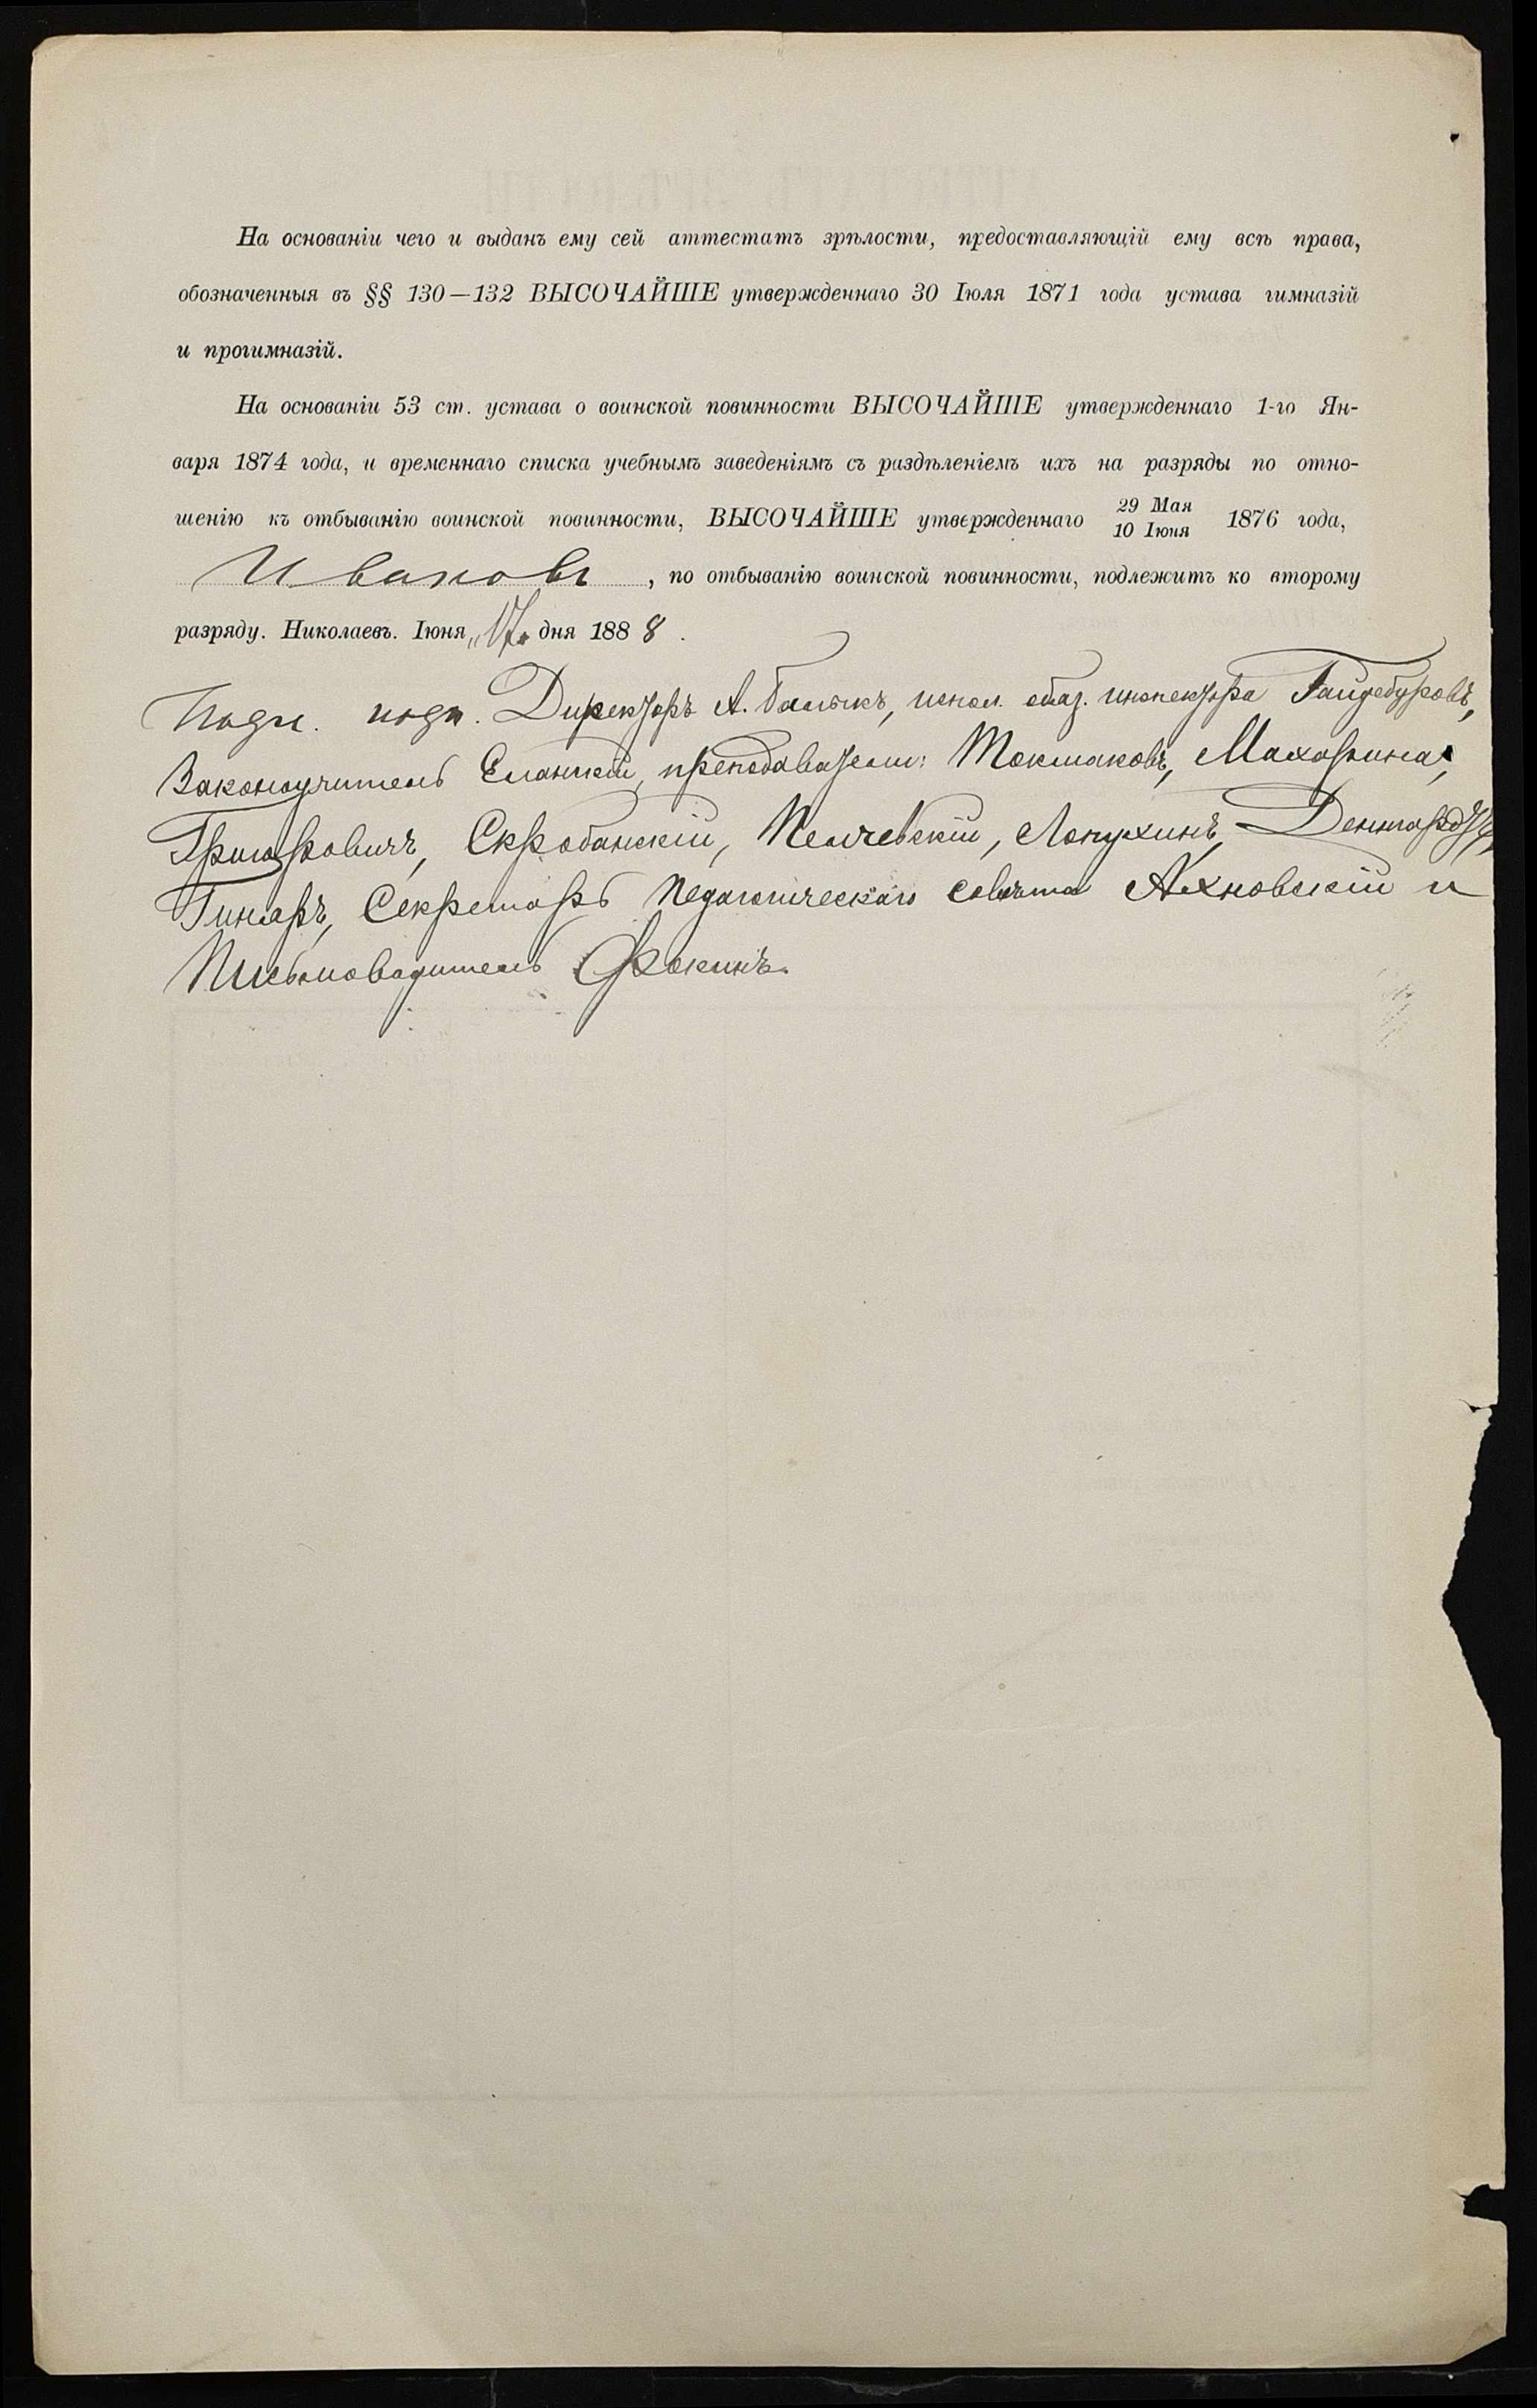 На основаніи чего и выданъ ему сей аттестатъ зрѣлости, предоставляющій ему всѣ права,
обозначенныя въ §§ 130—132 ВЫСОЧАЙШЕ утвержденнаго 30 Іюля 1871 года устава гимназій
и прогимназій.
На основаніи 53 ст. устава о воинской повинности ВЫСОЧАЙШЕ утвержденнаго 1-го Ян-
варя 1874 года, и временнаго списка учебнымъ заведеніямъ съ раздѣленіемъ ихъ на разряды по отно-
шенію къ отбыванію воинской повинности, ВЫСОЧАЙШЕ утвержденнаго 29 Мая / 10 Іюня 1876 года,
Ивановъ, по отбыванію воинской повинности, подлежитъ ко второму
разряду. Николаевъ. Іюня „17" дня 1888.
Подл. подп. Директоръ А. Балыкъ, испол. обяз. инспектора Гайдебуровъ,
Законоучитель Еланскій, преподаватели: Токмаковъ, Махорина,
Григоровичъ, Скробанскій, Пелчевскій, Лопухинъ,
Гинсаръ, Секретарь педагогическаго совѣта Ахновскій и
Письмоводитель Фокинъ.